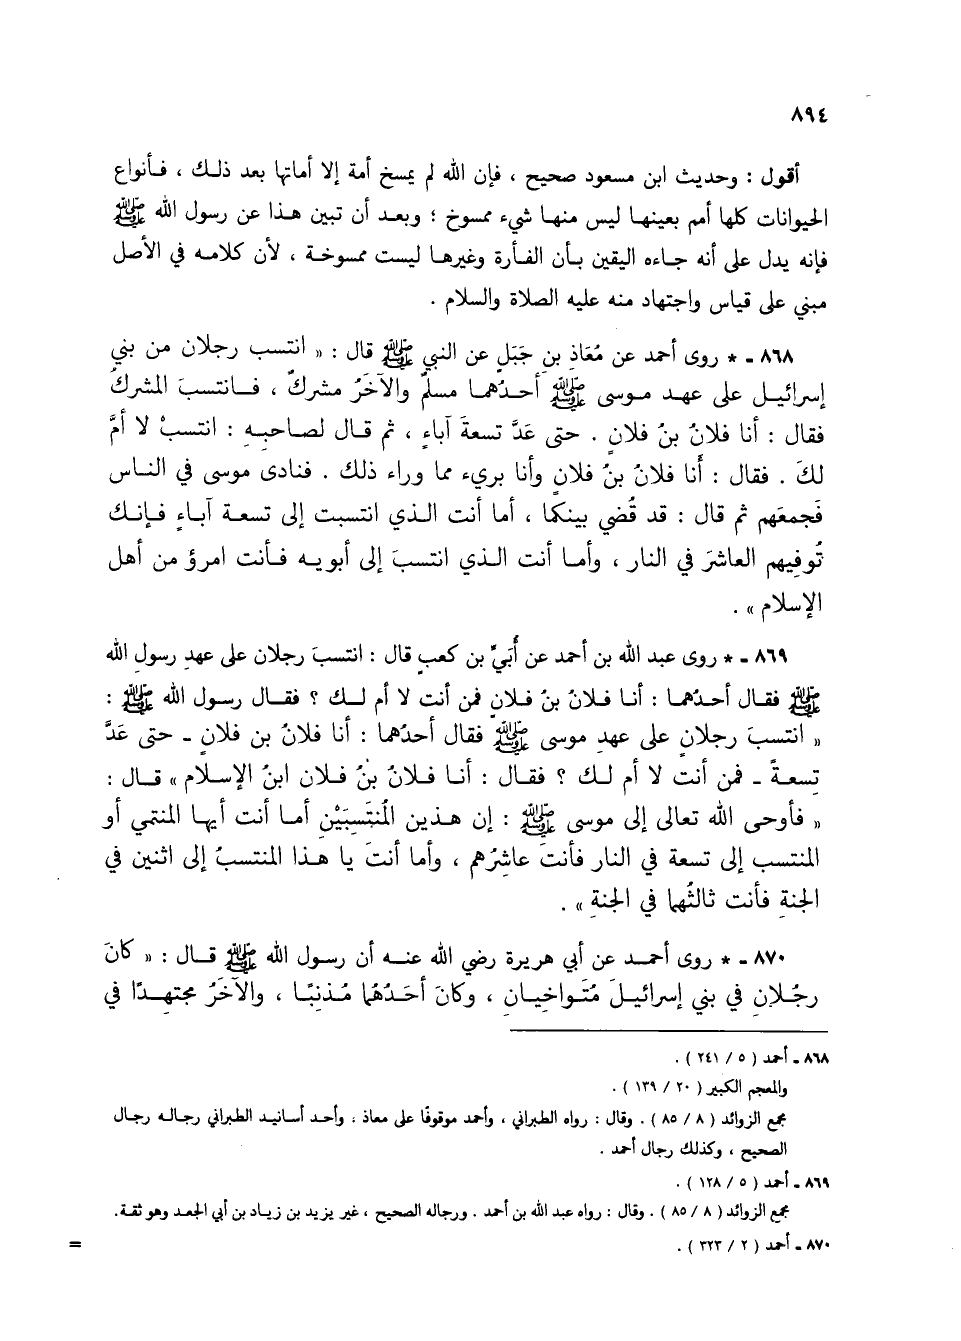 ٨٩٤
أقول : وحديث ابن مسعود صحيح ، فإن الله لم يمسخ أمة إلا أماتها بعد ذلك ، فأنواع
الحيوانات كلها أمم بعينها ليس منها شيء ممسوخ ؛ وبعد أن تبين هذا عن رسول الله ﷺ
فإنه يدل على أنه جاءه اليقين بأن الفأرة وغيرها ليست ممسوخة ، لأن كلامه في الأصل
مبني على قياس واجتهاد منه عليه الصلاة والسلام .
٨٦٨ - * روى أحمد عن مُعَاذِ بنِ جَبَلٍ عن النبي ﷺ قال : « انتسب رجلان من بني
إسرائيل على عهد موسى ﷺ أحدُهما مسلمٌ والآخَرُ مشركٌ ، فانتسبَ المشركُ
فقال : أنا فلانُ بنُ فلانٍ . حتى عَدَّ تسعةَ آباءٍ ، ثم قال لصاحبِهِ : انتسبْ لا أمَّ
لكَ . فقال : أنا فلانُ بنُ فلانٍ وأنا بريء مما وراء ذلك . فنادى موسى في الناس
فَجمعَهم ثم قال : قد قُضي بينكما ، أما أنت الذي انتسبت إلى تسعة آباءٍ فإنك
تُوفِيهم العاشرَ في النار ، وأما أنت الذي انتسبَ إلى أبويه فأنت امرؤ من أهل
الإسلام » .
٨٦٩ - * روى عبد الله بن أحمد عن أُبَيِّ بن كعبٍ قال : انتسبَ رجلان على عهدِ رسولِ الله
ﷺ فقال أحدُهما : أنا فلانُ بنُ فلانٍ فمن أنت لا أم لك ؟ فقال رسول الله ﷺ :
« انتسبَ رجلانِ على عهدِ موسى ﷺ فقال أحدُهما : أنا فلانُ بن فلانٍ - حتى عَدَّ
تسعةً - فمن أنت لا أم لك ؟ فقال : أنا فلانُ بْنُ فلان ابنُ الإسلام » قال :
« فأوحى الله تعالى إلى موسى ﷺ : إن هذين المُنتَسِبَيْنِ أما أنت أيها المنتمي أو
المنتسب إلى تسعة في النار فأنتَ عاشِرُهم ، وأما أنتَ يا هذا المنتسبُ إلى اثنين في
الجنةِ فأنت ثالثُهما في الجنةِ » .
٨٧٠ - * روى أحمد عن أبي هريرة رضي الله عنه أن رسول الله ﷺ قال : « كانَ
رجُلانِ في بني إسرائيلَ مُتَواخيانِ ، وكانَ أحدُهُما مُذنِبًا ، والآخَرُ مجتهِدًا في
٨٦٨ - أحمد ( ٥ / ٢٤١ ) .
والمعجم الكبير ( ٢٠ / ١٣٩ ) .
مجمع الزوائد ( ٨ / ٨٥ ) . وقال : رواه الطبراني ، وأحمد موقوفًا على معاذ ، وأحد أسانيد الطبراني رجاله رجال
الصحيح ، وكذلك رجال أحمد .
٨٦٩ - أحمد ( ٥ / ١٢٨ ) .
مجمع الزوائد ( ٨ / ٨٥ ) . وقال : رواه عبد الله بن أحمد . ورجاله الصحيح ، غير يزيد بن زياد بن أبي الجعد وهو ثقة .
٨٧٠ - أحمد ( ٢ / ٣٢٣ ) .
=